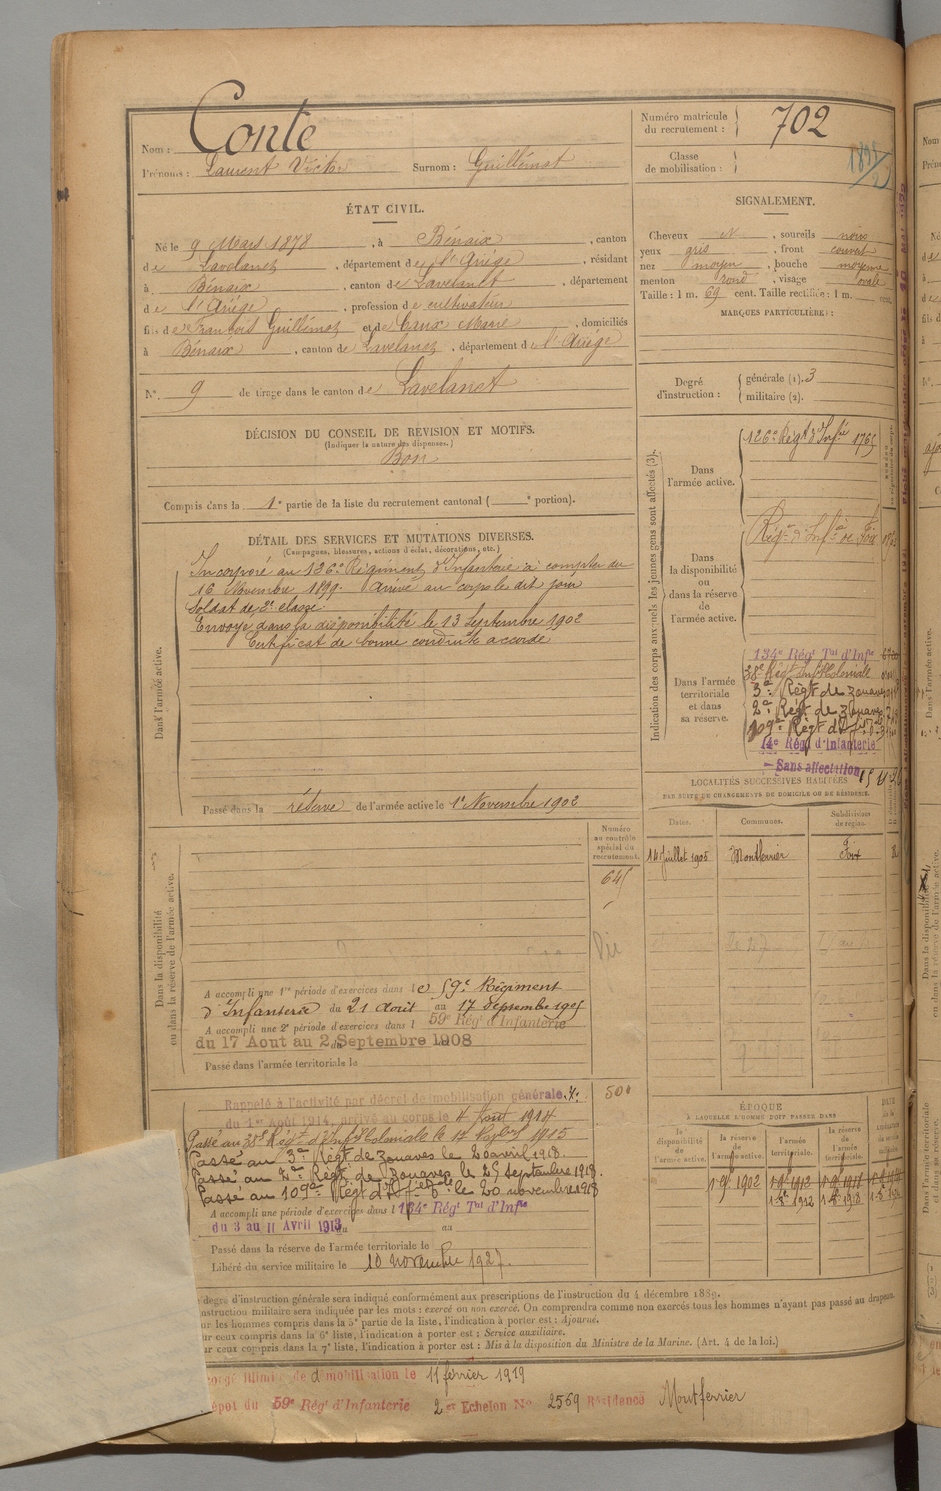 Nom : Conte
Prénoms : Laurent Victor Surnom : Guillémot
Numéro matricule du recrutement : 702
Classe de mobilisation :
ÉTAT CIVIL.
Né le 9 Mars 1878, à Bénaix, canton
de Lavelanet, département de l'Ariège, résidant
à Bénaix, canton de Lavelanet, département
de l'Ariège, profession de cultivateur
fils de François Guillémot et de Caux Marie, domiciliés
à Bénaix, canton de Lavelanet, département de l'Ariège
N° 9 de tirage dans le canton de Lavelanet
SIGNALEMENT.
Cheveux N, sourcils noirs
yeux gris, front couvert
nez moyen, bouche moyenne
menton rond, visage ovale
Taille : 1 m. 69 cent. Taille rectifiée : 1 m. cent.
MARQUES PARTICULIÈRES :
Degré d'instruction : générale (1). 3
militaire (2).
DÉCISION DU CONSEIL DE REVISION ET MOTIFS.
(Indiquer la nature des dispenses.)
Bon
Compris dans la 1e partie de la liste du recrutement cantonal ( e portion).
DÉTAIL DES SERVICES ET MUTATIONS DIVERSES.
(Campagnes, blessures, actions d'éclat, décorations, etc.)
Dans l'armée active.
Incorporé au 126e Régiment d'Infanterie à compter du
16 Novembre 1899. Arrivé au corps le dit jour
Soldat de 2e classe
Envoyé dans la disponibilité le 13 Septembre 1902
Certificat de bonne conduite accordé
Passé dans la réserve de l'armée active le 1er Novembre 1902
Indication des corps auxquels les jeunes gens sont affectés (3).
Dans l'armée active.
126e Régt d'Infie 1765
Dans la disponibilité ou dans la réserve de l'armée active.
Régt d'Infie de Foix
Dans l'armée territoriale et dans sa réserve.
134e Régt Tal d'Infie
38e Régt Inf Coloniale
3e Régt de zouaves
2e Régt de zouaves
109e Régt d'Infie
14e Régt d'Infanterie
Sans affectation
LOCALITÉS SUCCESSIVES HABITÉES
PAR SUITE DE CHANGEMENTS DE DOMICILE OU DE RÉSIDENCE.
Dates. Communes. Subdivisions de région.
14 Juillet 1905 Montferrier Foix R
Dans la disponibilité ou dans la réserve de l'armée active.
Numéro au contrôle spécial du recrutement.
645
A accompli une 1re période d'exercices dans le 59e Régiment
d'Infanterie du 21 Août au 17 Septembre 1905
A accompli une 2e période d'exercices dans l 59e Régt d'Infanterie
du 17 Aout au 2 Septembre 1908
Passé dans l'armée territoriale le
500
Rappelé à l'activité par décret de mobilisation générale
du 1er Août 1914, arrivé au corps le 4 Aout 1914
Passé au 38e Régt d'Inf Coloniale le 17 1915
Passé au 3e Régt de Zouaves le 20 avril 1918.
Passé au 2e Régt de Zouaves le 25 septembre 1918.
Passé au 109e Régt d'Infie le 20 novembre 1918
A accompli une période d'exercices dans l 134e Régt Tal d'Infie
du 3 au 11 Avril 1913 au
Passé dans la réserve de l'armée territoriale le
Libéré du service militaire le 10 novembre 1927.
ÉPOQUE
À LAQUELLE L'HOMME DOIT PASSER DANS
la disponibilité de l'armée active. la réserve de l'armée active. l'armée territoriale. la réserve de l'armée territoriale.
degré d'instruction générale sera indiqué conformément aux prescriptions de l'instruction du 4 décembre 1889.
instruction militaire sera indiquée par les mots : exercé ou non exercé. On comprendra comme non exercés tous les hommes n'ayant pas passé au drapeau.
les hommes compris dans la 5e partie de la liste, l'indication à porter est : Ajourné.
ceux compris dans la 6e liste, l'indication à porter est : Service auxiliaire.
ceux compris dans la 7e liste, l'indication à porter est : Mis à la disposition du Ministre de la Marine. (Art. 4 de la loi.)
illimité de démobilisation le 11 février 1919
Dépôt du 59e Régt d'Infanterie 2e Echelon No 2569 Résidence Montferrier